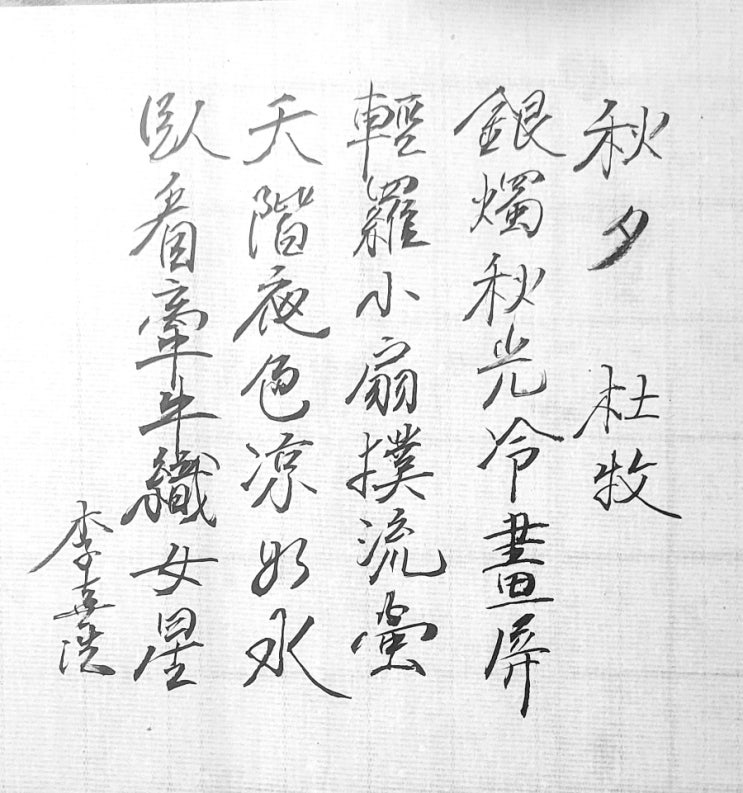 秋夕 杜牧
銀燭秋光冷畫屏
輕羅小扇撲流螢
天階夜色涼如水
臥看牽牛織女星
李喜浩